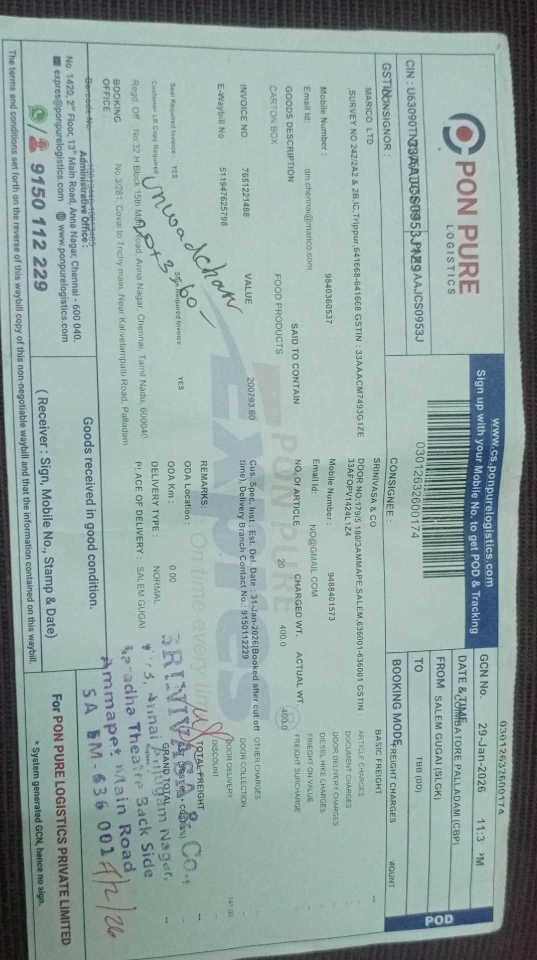 PON PURE
LOGISTICS
www.cs.ponpurelogistics.com
Sign up with your Mobile No. to get POD & Tracking
030126032600174
GCN No.
29-Jan-2026
DATE & TIME
COIMBATORE PALLADAM (CBP)
FROM
SALEM GUGAI (SLGK)
TO
TBB (DD)
BOOKING MODE
POD
GSTIN
CONSIGNOR :
MARICO LTD
SURVEY NO 242/2A2 & 2B,IC,Trippur,641668-641668 GSTIN : 33AAACM7493G1ZE
Mobile Number :
9840360537
Email Id:
CONSIGNEE :
SRINIVASA & CO
DOOR NO:179/5 180/3AMMAPE,SALEM,636001-636001 GSTIN
33AFOPV1424L1Z4
Mobile Number :
9488401573
Email Id:
NO@GMAIL.COM
GOODS DESCRIPTION
SAID TO CONTAIN
NO. Of ARTICLE
CHARGED WT.
ACTUAL WT.
CARTON BOX
FOOD PRODUCTS
20
400.0
400.0
INVOICE NO
7651221488
VALUE
200793.60
E-Waybill No
511947625798
Cus. Spec. Inst.: Est. Del. Date : 31-Jan-2026(Booked after cut off
time), Delivery Branch Contact No.: 9150112229
FREIGHT CHARGES
BASIC FREIGHT
ARTICLE CHARGES
DOCUMENT CHARGES
DOOR DELIVERY CHARGES
DIESEL HIKE CHARGES
FREIGHT ON VALUE
FREIGHT SURCHARGE
OTHER CHARGES
DOOR COLLECTION
DOOR DELIVERY
DISCOUNT
TOTAL FREIGHT
GRAND TOTAL
Seal Required Invoice
YES
Customer LR Copy Required
YES
REMARKS
ODA Location :
ODA Km :
0.00
DELIVERY TYPE :
NORMAL
PLACE OF DELIVERY :
SALEM GUGAI
Regd. Off
Anna Nagar, Chennai, Tamil Nadu, 600040
BOOKING
OFFICE
No 3/281, Covai to Trichy main, Near Karvelampatti Road, Palladam
SRINIVASA & Co.,
Radha Theatre Back Side
Ammapet Main Road
SALEM-636 001
4/2/26
Administrative Office :
No 1420, 2nd Floor, 13th Main Road, Anna Nagar, Chennai - 600 040.
expres@ponpurelogistics.com www.ponpurelogistics.com
9150 112 229
Goods received in good condition.
( Receiver : Sign, Mobile No., Stamp & Date)
For PON PURE LOGISTICS PRIVATE LIMITED
* System generated GCN, hence no sign.
The terms and conditions set forth on the reverse of this waybill copy of this non-negotiable waybill and that the information contained on this waybill.